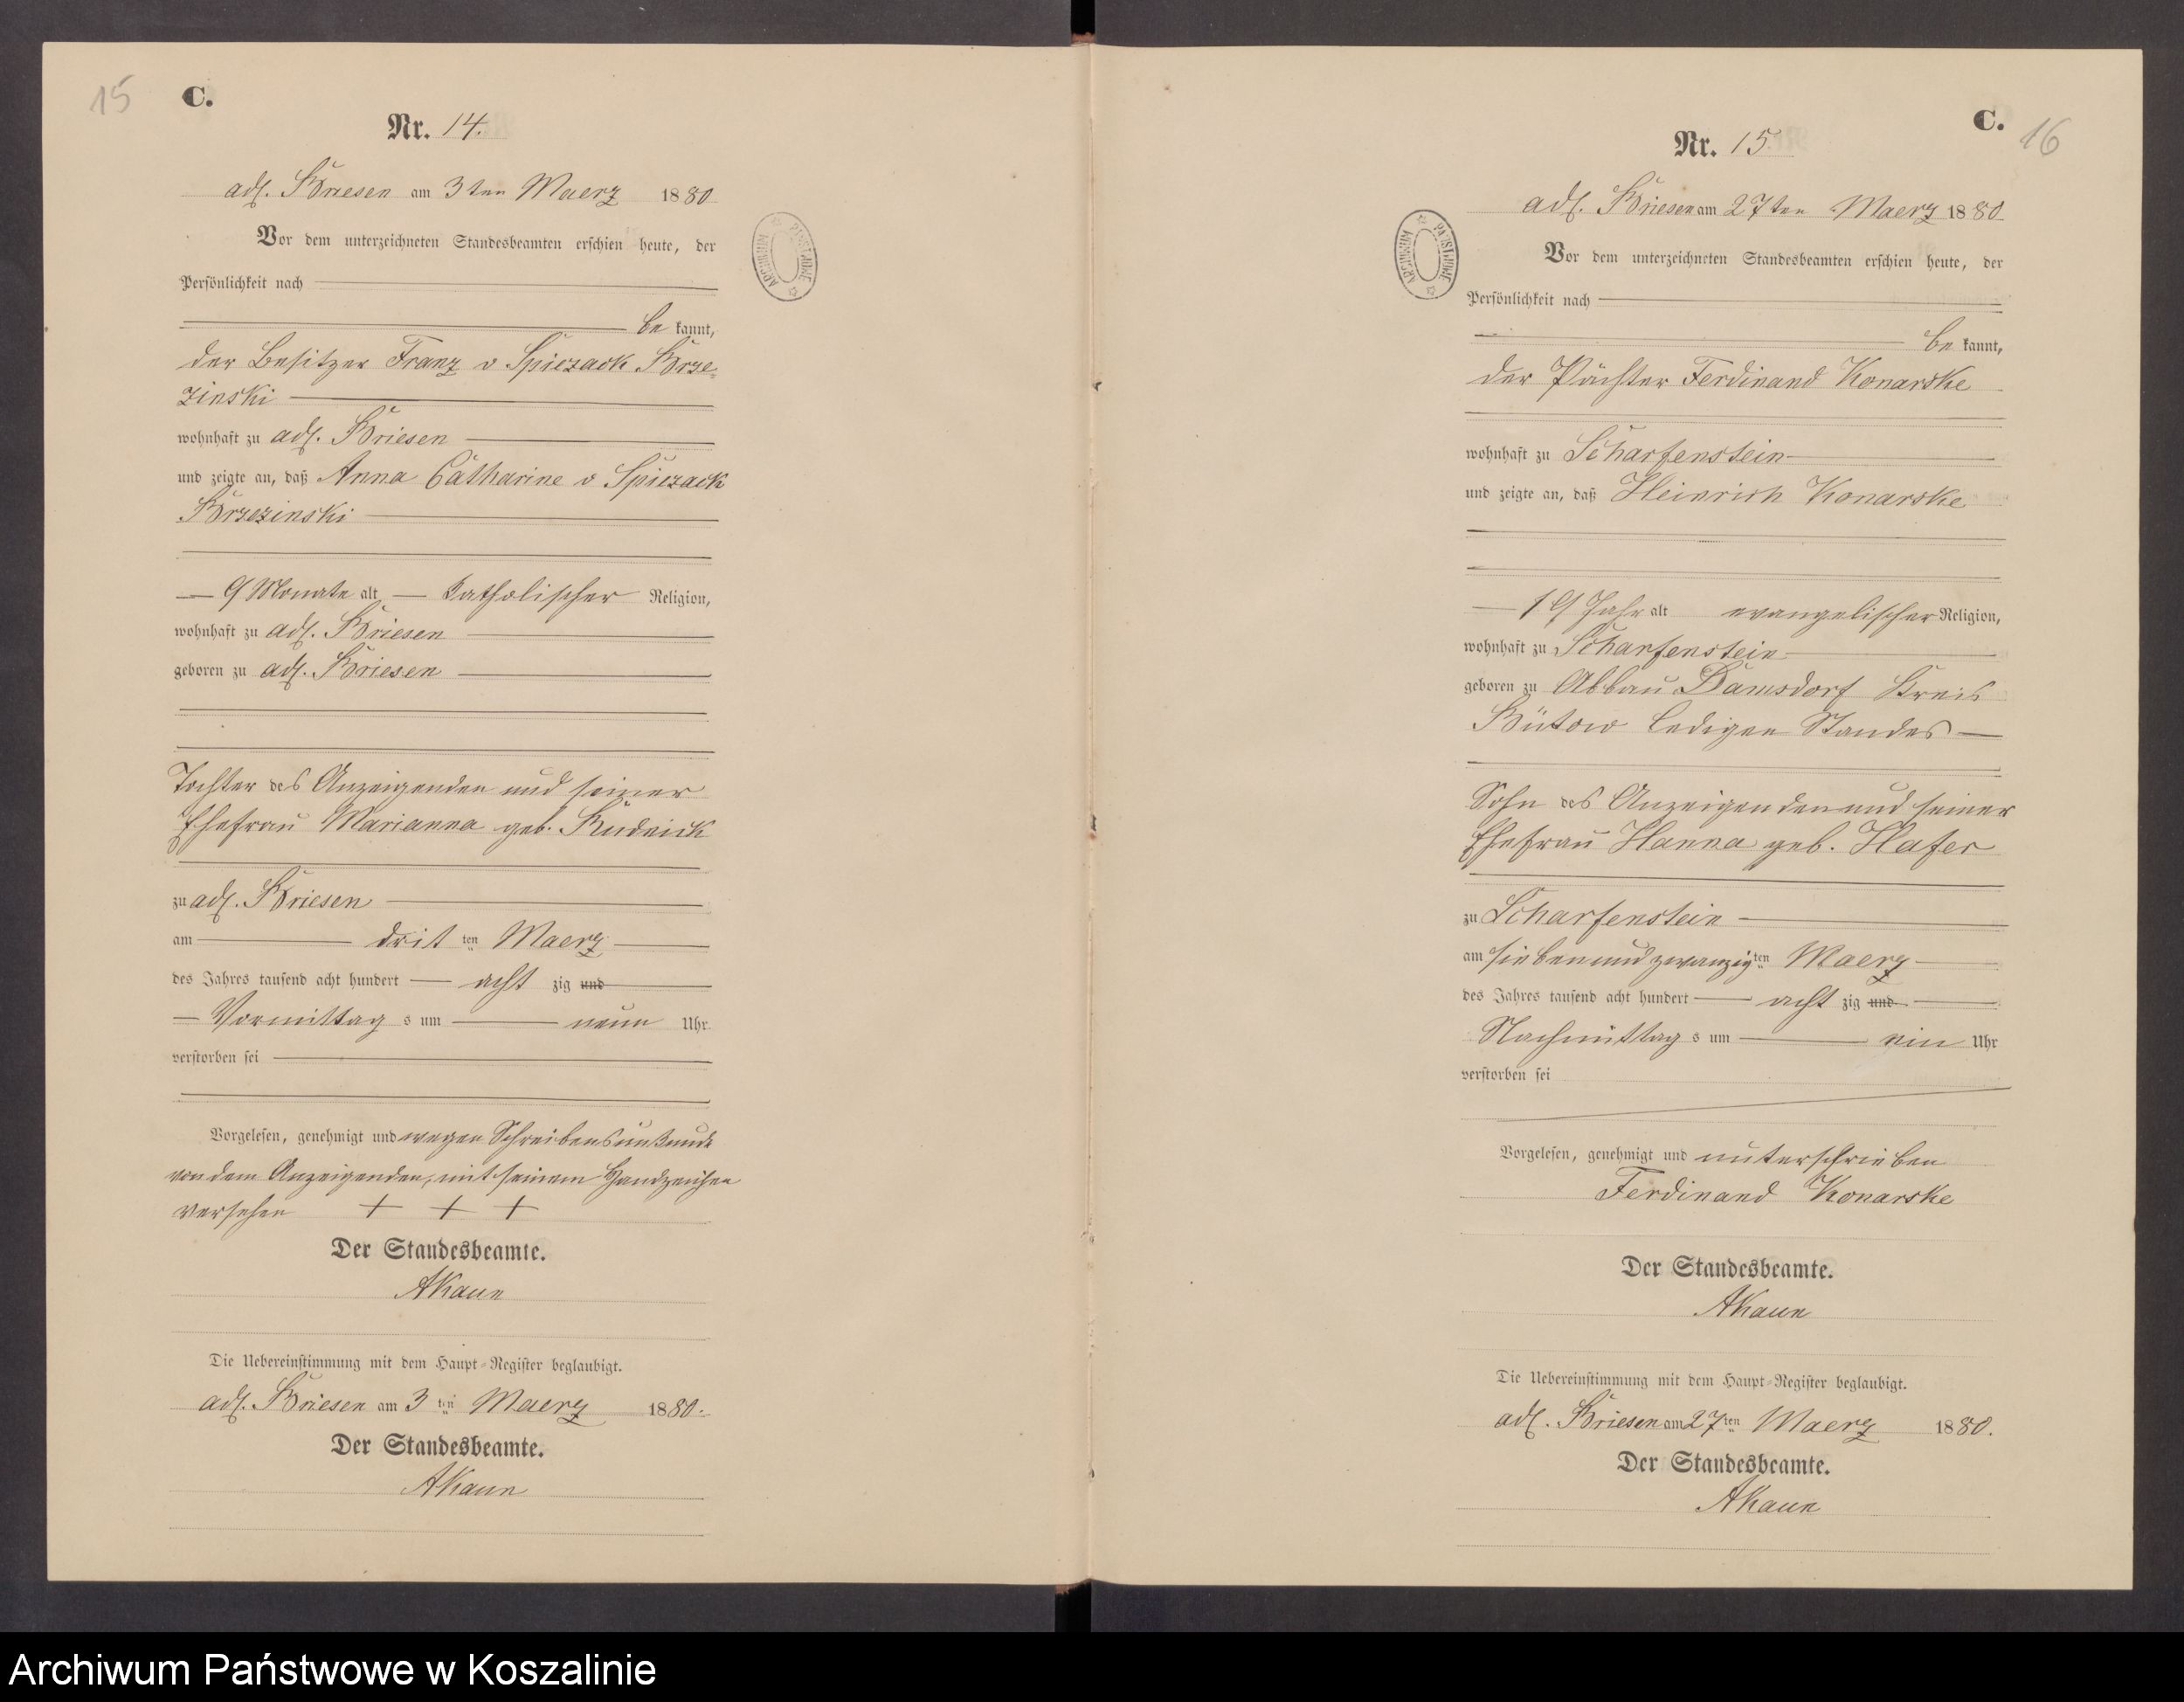 15
C.
Nr. 14.
adl. Briesen am 3ten Maerz 1880
Vor dem unterzeichneten Standesbeamten erschien heute, der
Persönlichkeit nach
be kannt,
der Besitzer Franz v Spiczack Brze-
zinski
wohnhaft zu adl. Briesen
und zeigte an, daß Anna Catharine v Spiczack
Brzezinski
9 Monate alt katholischer Religion,
wohnhaft zu adl. Briesen
geboren zu adl. Briesen
Tochter des Anzeigenden und seiner
Ehefrau Marianna geb. Rudnick
zu adl. Briesen
am drit ten Maerz
des Jahres tausend acht hundert acht zig und
Vormittag s um neun Uhr
verstorben sei
Vorgelesen, genehmigt und wegen Schreibensunkunde
von dem Anzeigenden, mit seinem Handzeichen
versehen + + +
Der Standesbeamte.
AKaun
Die Uebereinstimmung mit dem Haupt-Register beglaubigt.
adl. Briesen am 3 ten Maerz 1880.
Der Standesbeamte.
AKaun
ARCHIWUM PAŃSTWOWE
C.
16
Nr. 15
adl. Briesen am 27ten Maerz 1880
Vor dem unterzeichneten Standesbeamten erschien heute, der
Persönlichkeit nach
be kannt,
der Pächter Ferdinand Konarske
wohnhaft zu Scharfenstein
und zeigte an, daß Heinrich Konarske
19 Jahr alt evangelischer Religion,
wohnhaft zu Scharfenstein
geboren zu Abbau Damsdorf Kreis
Bütow ledigen Standes
Sohn des Anzeigenden und seiner
Ehefrau Hanna geb. Hafer
zu Scharfenstein
am siebenundzwanzig ten Maerz
des Jahres tausend acht hundert acht zig und
Nachmittag s um ein Uhr
verstorben sei
Vorgelesen, genehmigt und unterschrieben
Ferdinand Konarske
Der Standesbeamte.
AKaun
Die Uebereinstimmung mit dem Haupt-Register beglaubigt.
adl. Briesen am 27 ten Maerz 1880.
Der Standesbeamte.
AKaun
ARCHIWUM PAŃSTWOWE
Archiwum Państwowe w Koszalinie